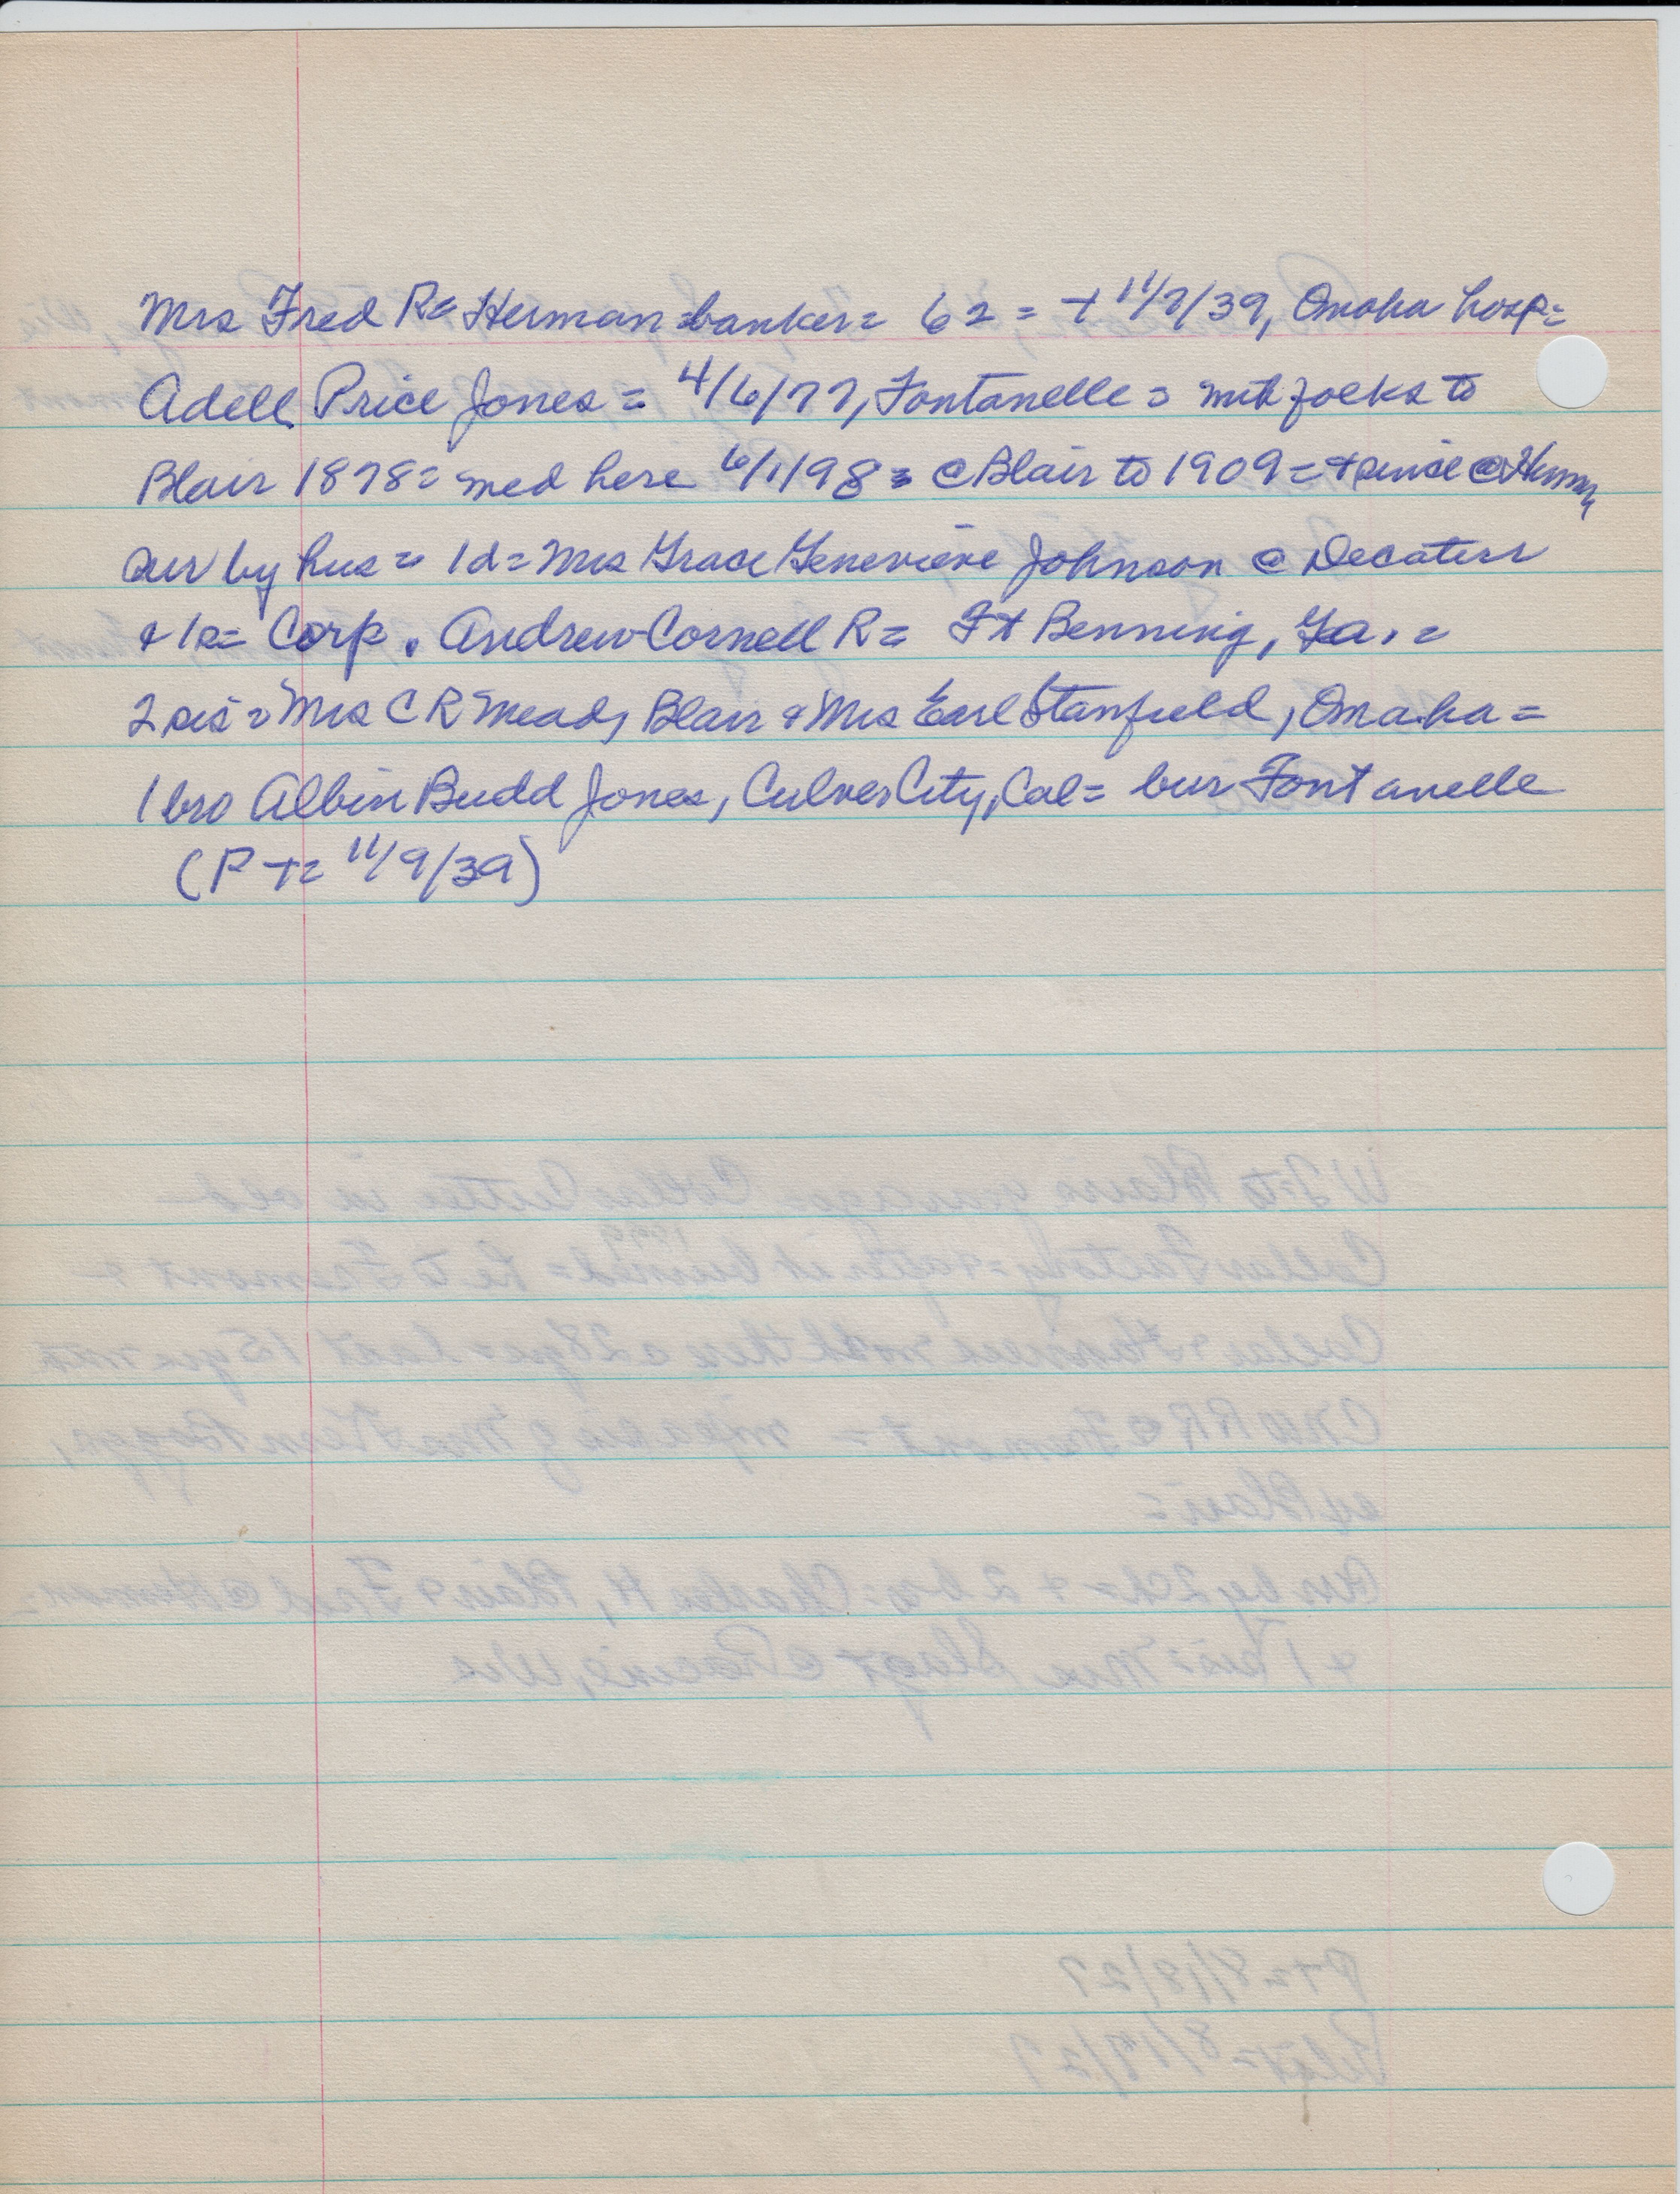 Mrs Fred R = Herman = banker = 62 = + 11/7/39, Omaha hosp =
Adell Price Jones = 4/6/77, Fontanelle = with folks to
Blair 1878 = med here 6/1/98 = @ Blair to 1909 = + since @ Herman
sur by hus = 1d = Mrs Grace Genevieve Johnson @ Decatur
& 1s = Corp. Andrew Cornell R = Ft Benning, Ga. =
2 sis = Mrs C R Mead, Blair & Mrs Earl Stanfield, Omaha =
1 bro Albin Budd Jones, Culver City, Cal = bur Fontanelle
(P + = 11/9/39)